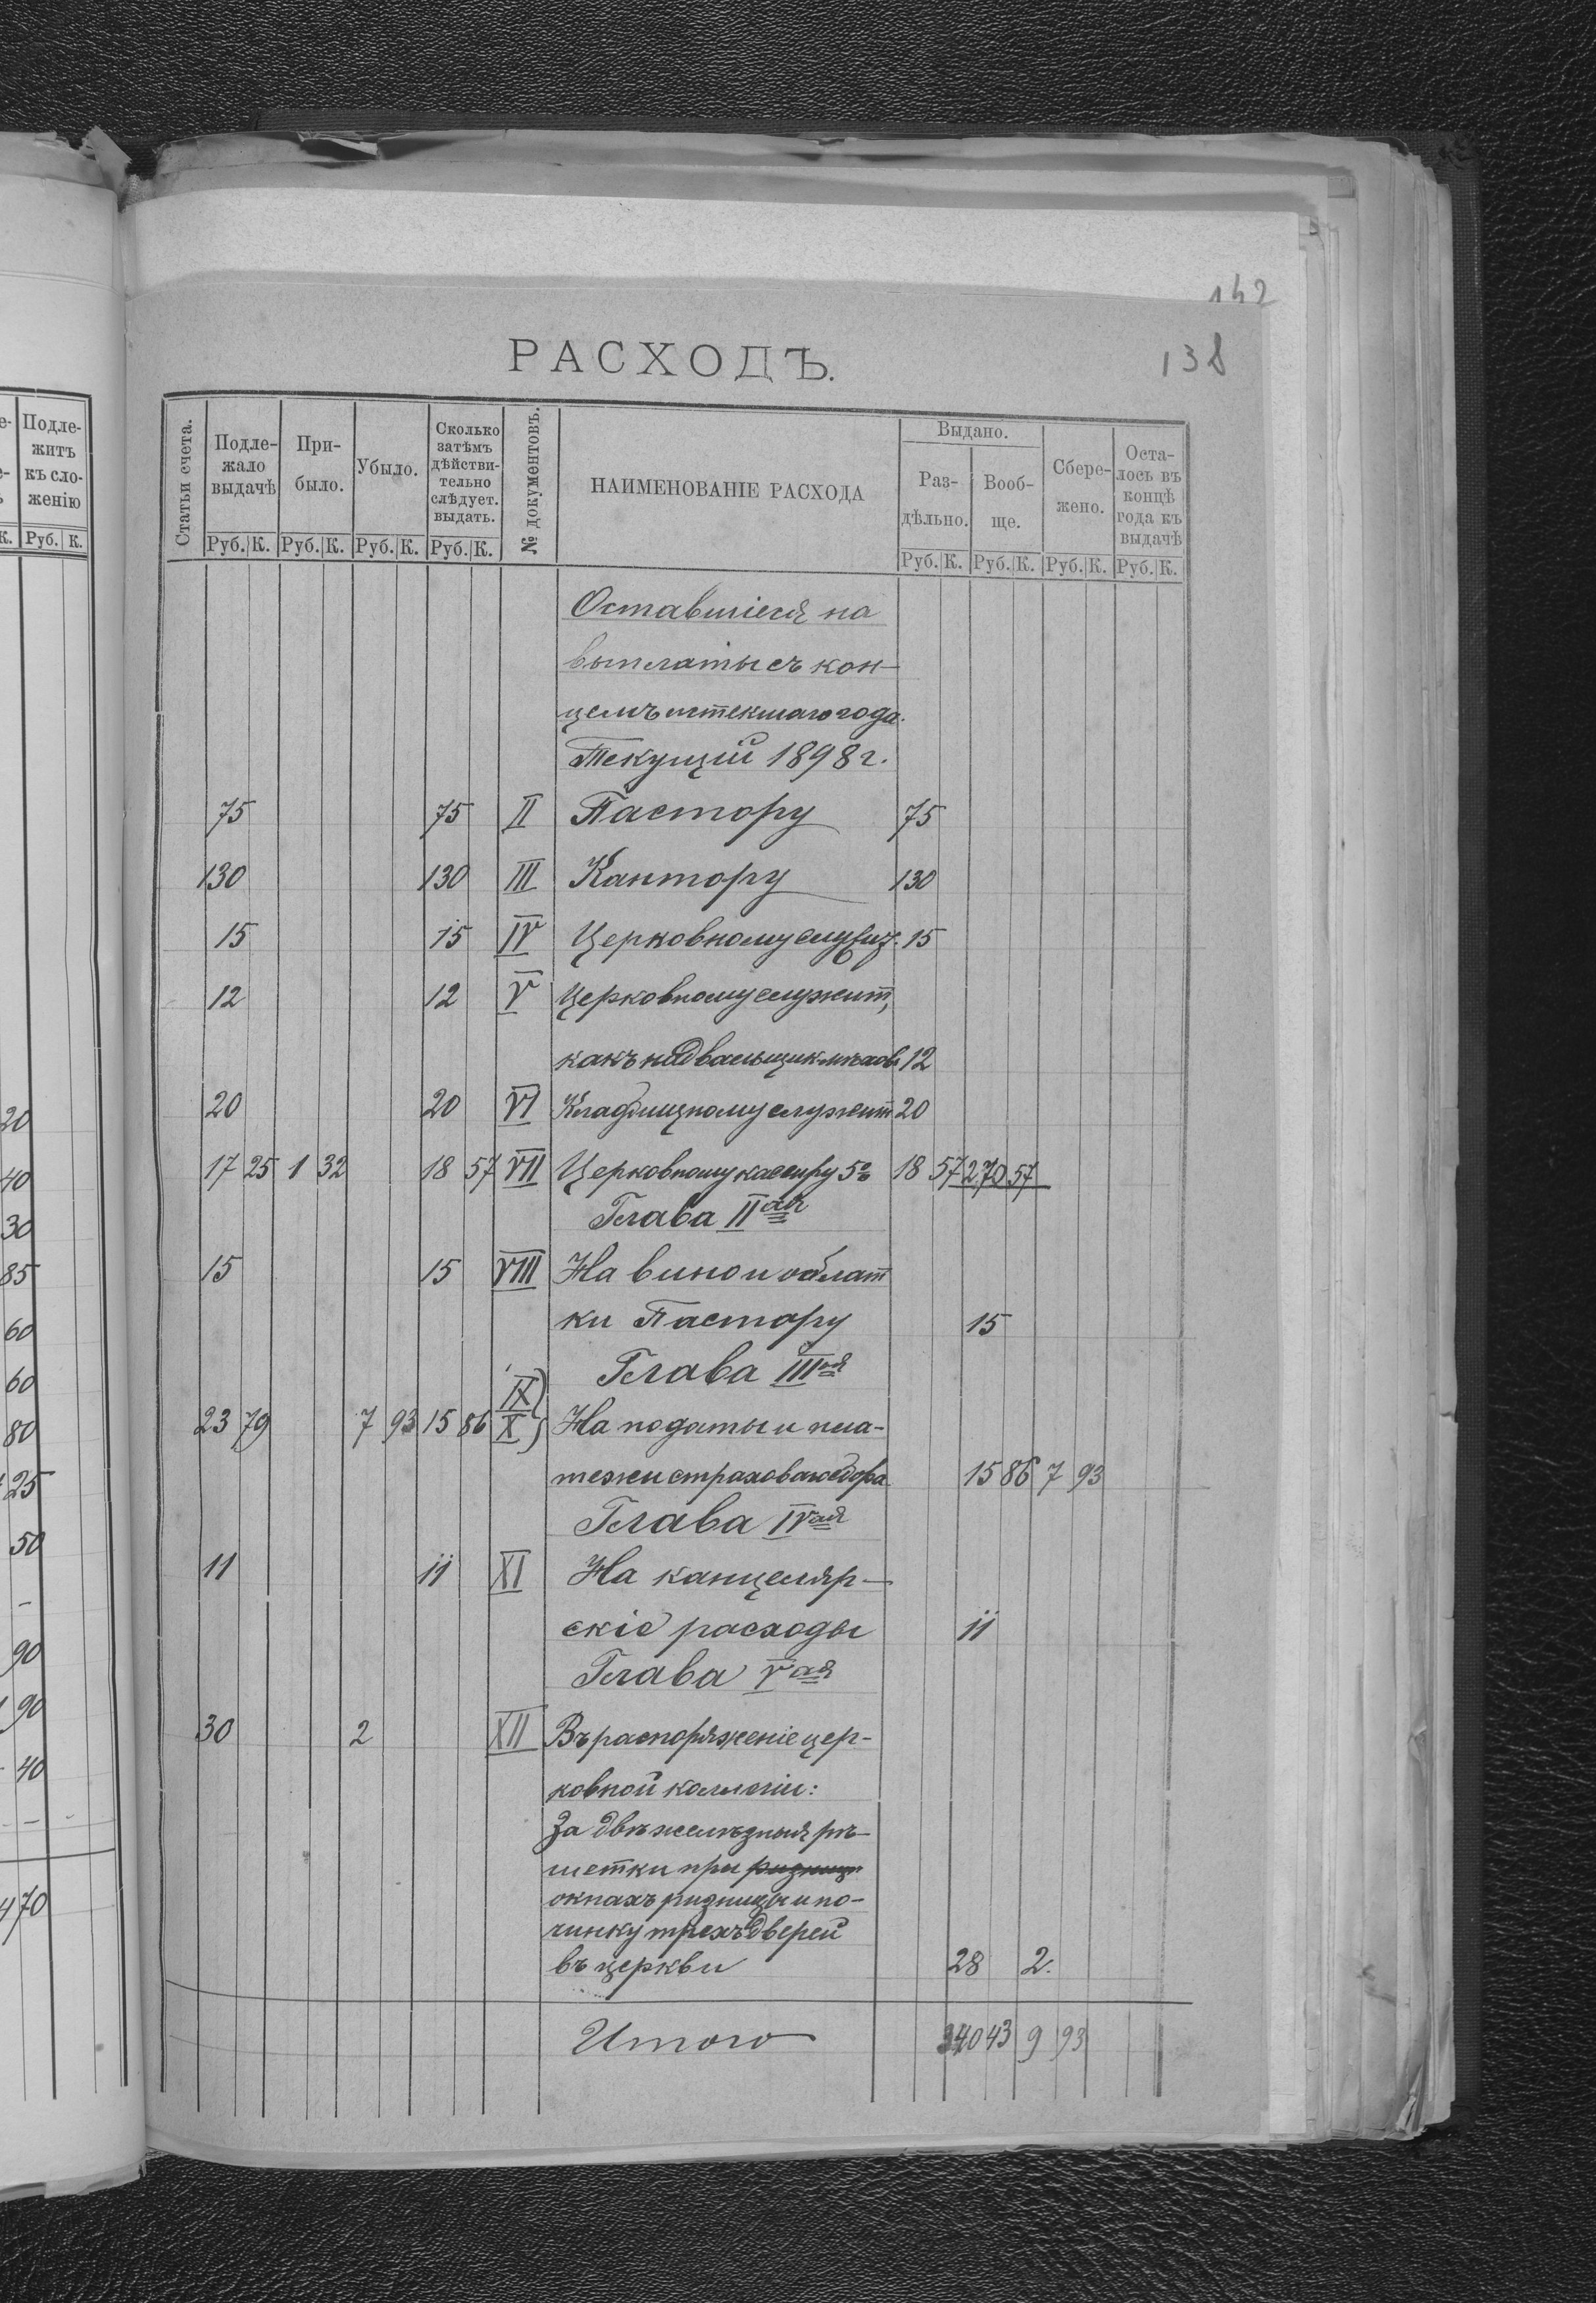 142
138
РАСХОДЪ.
Статьи счета.
Подле-
жало
выдачѣ
При-
было.
Убыло.
Сколько
затѣмъ
дѣйстви-
тельно
слѣдует.
выдать.
№ документовъ.
НАИМЕНОВАНІЕ РАСХОДА
Выдано.
Раз-
дѣльно.
Вооб-
ще.
Сбере-
жено.
Оста-
лось въ
концѣ
года къ
выдачѣ
Руб. К. Руб. К. Руб. К. Руб. К. Руб. К. Руб. К. Руб. К. Руб. К.
Оставшіеся на
выплаты съ кон-
цемъ истекшаго года.
Текущій 1898 г.
75 75 II Пастору 75
130 130 III Кантору 130
15 15 IV Церковному 15
12 12 V Церковному служит,
какъ 12
20 20 VI Кладбищному служит 20
17 25 1 32 18 57 VII Церковному кассиру 5% 18 57 270 57
Глава IIая
15 15 VIII На вино и облат
ки Пастору 15
Глава IIIая
IX)
23 79 7 93 15 86 X) На подати и пла-
тежи 15 86 7 93
Глава IVая
11 11 XI На канцеляр-
скіе расходы 11
Глава Vая
30 2 XII Въ распоряженіе цер-
ковной коллегіи:
За двѣ желѣзныя рѣ-
шетки при ризниц
окнахъ ризницы и по-
чинку трехъ дверей
въ церкви 28 2.
Итого 340 43 9 93
Подле-
житъ
къ сло-
женію
К. Руб. К.
20
40
30
85
60
60
80
25
50
-
90
90
40
470